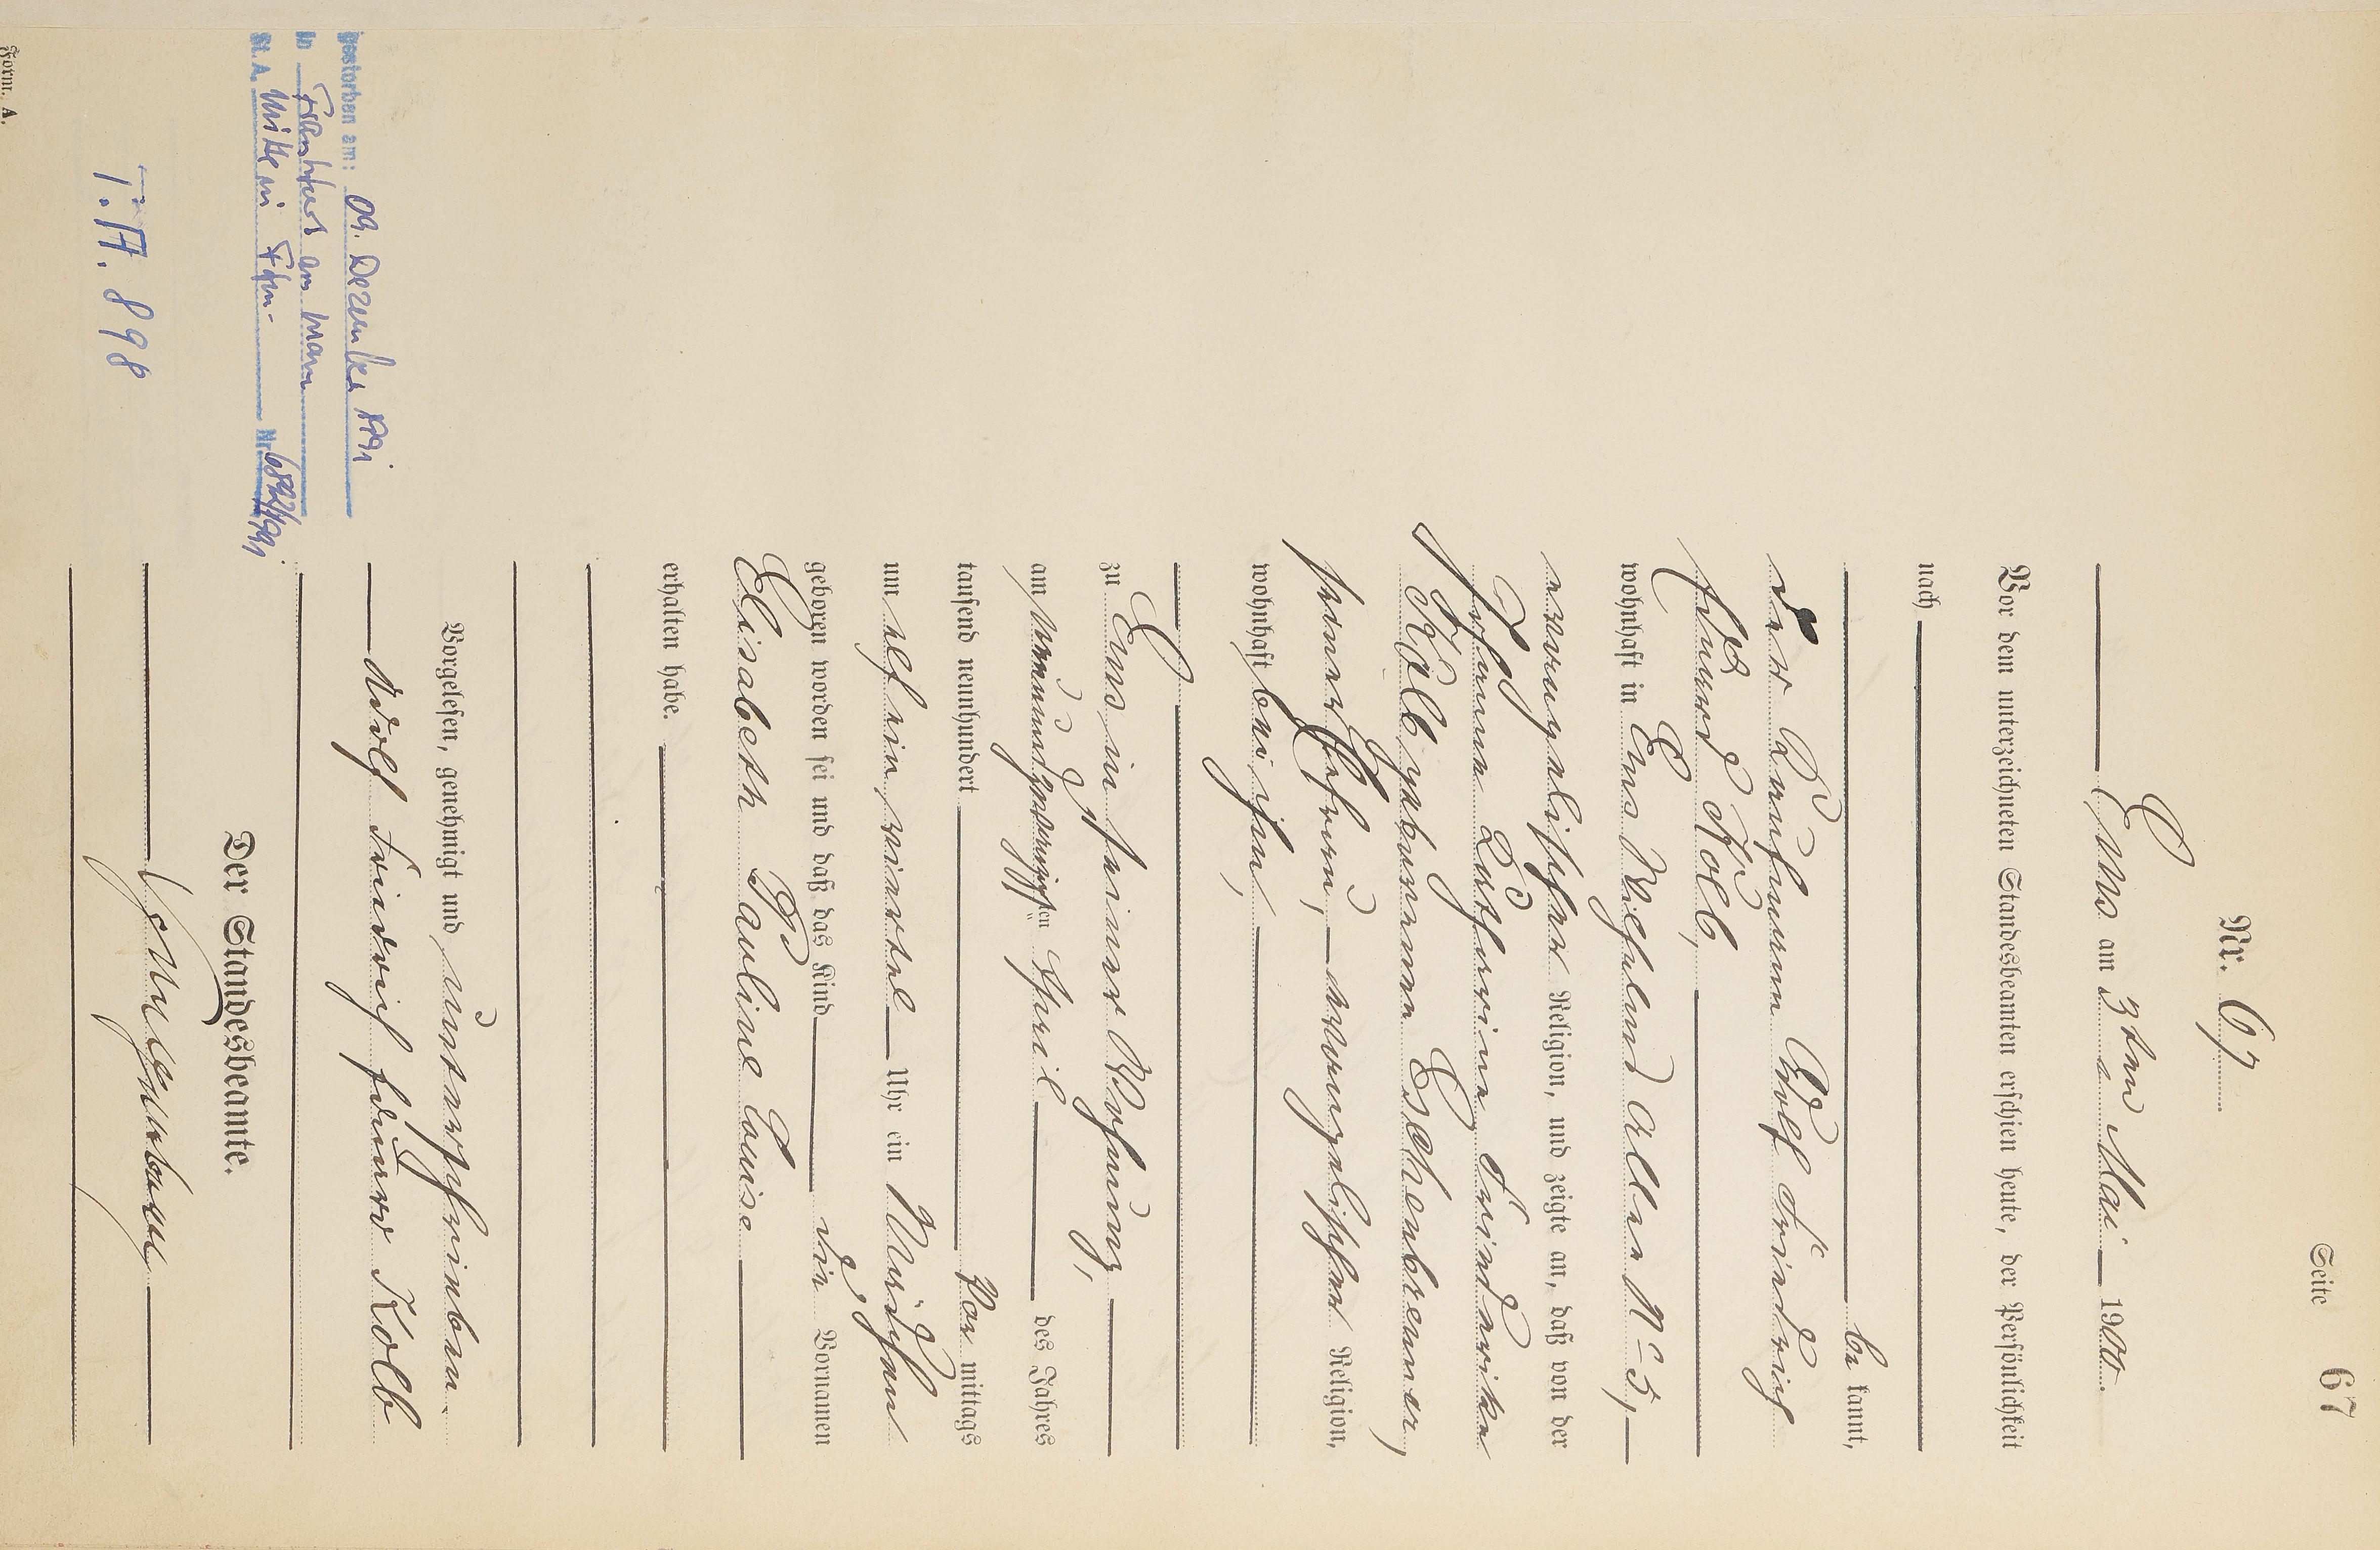 Seite 67
Nr. 67
Ems am 3ten Mai 1900.
Vor dem unterzeichneten Standesbeamten erschien heute, der Persönlichkeit
nach
be kannt,
der Kaufmann Adolf Friedrich
Eduard Kolb,
wohnhaft in Ems Wilhelms Allee No 5,
evangelischer Religion, und zeigte an, daß von der
Johanna Katharina Friederike
Kolb geborenen Eschenbrenner,
seiner Ehefrau, evangelischen Religion,
wohnhaft bei ihm,
zu Ems in seiner Wohnung,
am neunundzwanzigsten April des Jahres
tausend neunhundert Vor mittags
um elf ein viertel Uhr ein Mädchen
geboren worden sei und daß das Kind die Vornamen
Elisabeth Pauline Louise
erhalten habe.
Vorgelesen, genehmigt und unterschrieben
Adolf Friedrich Eduard Kolb
Der Standesbeamte.
gestorben am: 09. Dezember 1991
in Frankfurt am Main
St.A. Mitte in Ffm- Nr. 6842/1991
T.A. 898
Form. A.